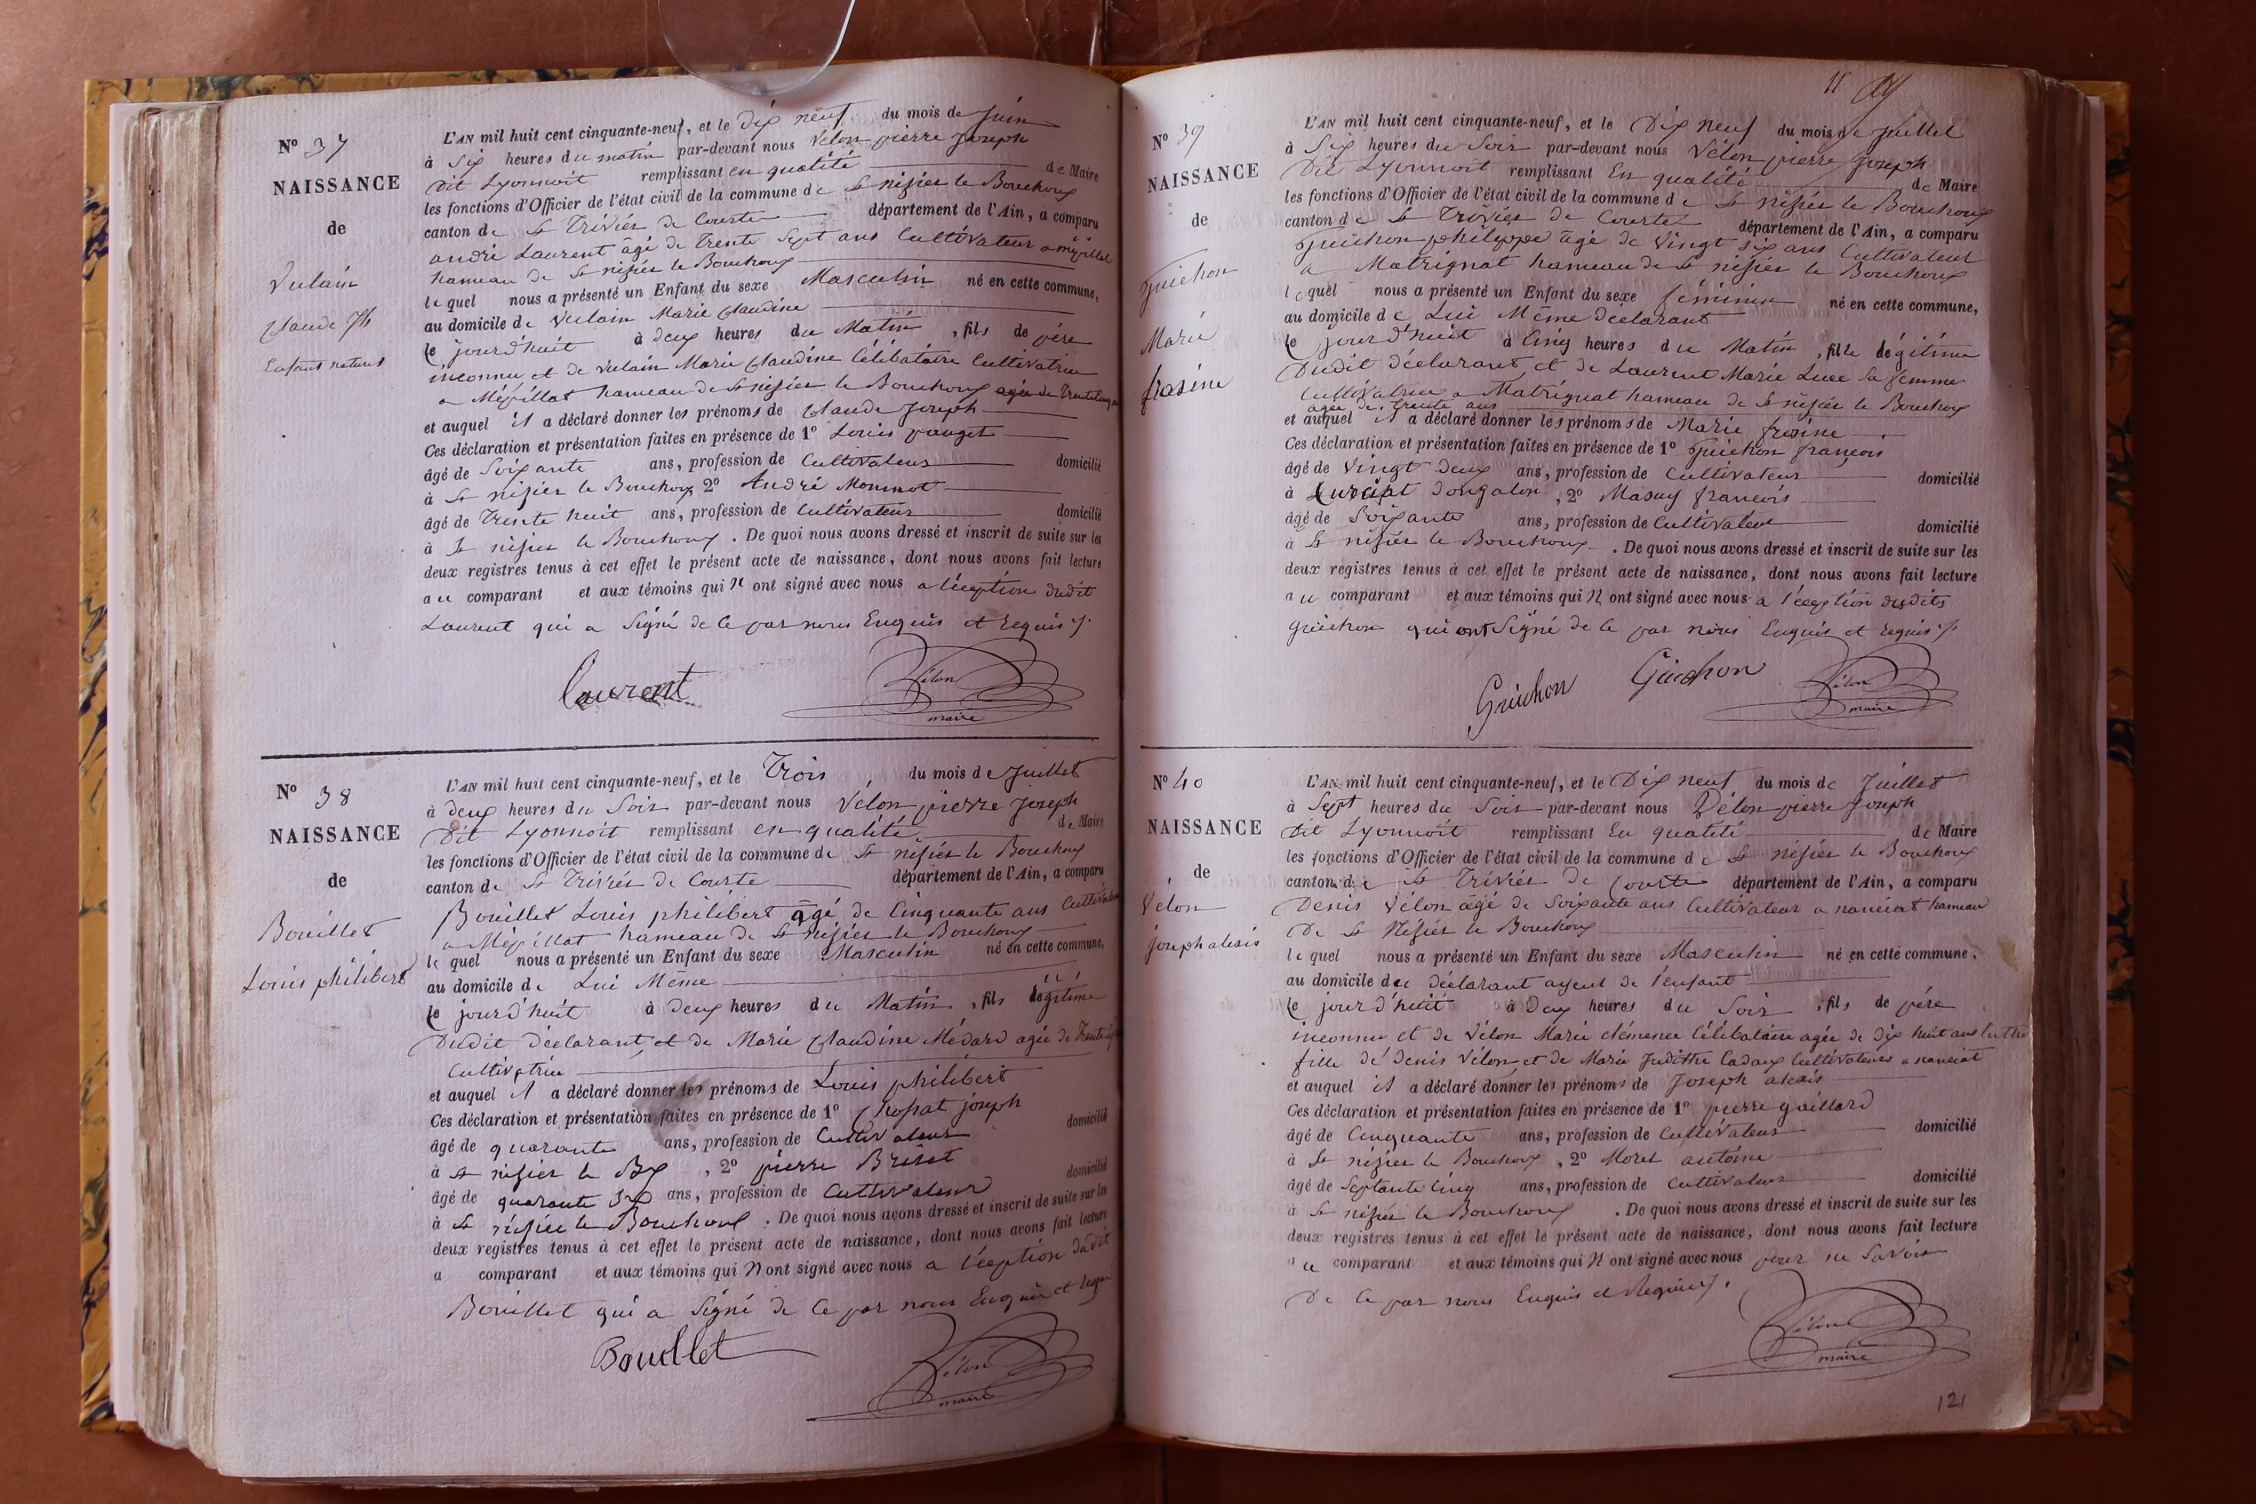 N° 37
NAISSANCE
de
Vulain
Claude Jh
Enfant naturel
L'AN mil huit cent cinquante-neuf, et le dix neuf du mois de Juin
à Six heures du matin par-devant nous Vélon pierre Joseph
dit Lyonnoit remplissant en qualité de Maire
les fonctions d'Officier de l'état civil de la commune de St nisier le Bouchoux
canton de St Trivier de Courte département de l'Ain, a comparu
andré Laurent âgé de Trente Sept ans Cultivateur a mépillat
hameau de St nisier le Bouchoux
lequel nous a présenté un Enfant du sexe Masculin né en cette commune,
au domicile de Vulain Marie Claudine
le jourd'huit à deux heures du Matin, fils de père
inconnu et de Vulain Marie Claudine Célibataire Cultivatrice
a Mépillat hameau de St nisier le Bouchoux agée de Trente
et auquel il a déclaré donner les prénoms de Claude Joseph
Ces déclaration et présentation faites en présence de 1° Louis pauget
âgé de Soixante ans, profession de Cultivateur domicilié
à St nisier le Bouchoux 2° André Monnot
âgé de Trente huit ans, profession de Cultivateur domicilié
à St nisier le Bouchoux. De quoi nous avons dressé et inscrit de suite sur les
deux registres tenus à cet effet le présent acte de naissance, dont nous avons fait lecture
au comparant et aux témoins qui N ont signé avec nous a l'éception dudit
Laurent qui a Signé de Ce par nous Enquis et requis ./.
Laurent
Vélon
maire
N° 38
NAISSANCE
de
Bouillet
Louis philibert
L'AN mil huit cent cinquante-neuf, et le Trois du mois de Juillet
à deux heures du Soir par-devant nous Vélon pierre Joseph
Dit Lyonnoit remplissant en qualité de Maire
les fonctions d'Officier de l'état civil de la commune de St nisier le Bouchoux
canton de St Trivier de Courte département de l'Ain, a comparu
Bouillet Louis philibert âgé de Cinquante ans Cultivateur
a Mépillat hameau de St nisier le Bouchoux
lequel nous a présenté un Enfant du sexe Masculin né en cette commune,
au domicile de Lui Même
le jourd'huit à deux heures du Matin, fils légitime
Dudit déclarant, et de Marie Claudine Médard agée de Trente
Cultivatrice
et auquel il a déclaré donner les prénoms de Louis philibert
Ces déclaration et présentation faites en présence de 1° joseph
âgé de quarante ans, profession de Cultivateur domicilié
à St nisier le Bx, 2° pierre Brevet
âgé de quarante ans, profession de Cultivateur domicilié
à St nisier le Bouchoux. De quoi nous avons dressé et inscrit de suite sur les
deux registres tenus à cet effet le présent acte de naissance, dont nous avons fait lecture
a comparant et aux témoins qui N ont signé avec nous a l'éception dudit
Bouillet qui a Signé de Ce par nous Enquis et requis
Bouillet
Vélon
maire
N° 39
NAISSANCE
de
Guichon
Marie
frasine
L'AN mil huit cent cinquante-neuf, et le Dix neuf du mois de Juillet
à Six heures du Soir par-devant nous Vélon pierre Joseph
Dit Lyonnoit remplissant En qualité de Maire
les fonctions d'Officier de l'état civil de la commune de St nisier le Bouchoux
canton de St Trivier de Courte département de l'Ain, a comparu
Guichon philippe âgé de Vingt Six ans Cultivateur
a Matrignat hameau de St nisier le Bouchoux
lequel nous a présenté un Enfant du sexe féminin né en cette commune,
au domicile de Lui Même déclarant
le jourd'huit à Cinq heures du Matin, fille légitime
Dudit déclarant, et de Laurent Marie Luce Sa femme
Cultivatrice a Matrignat hameau de St nisier le Bouchoux
agée de trente ans
et auquel il a déclaré donner les prénoms de Marie frasine
Ces déclaration et présentation faites en présence de 1° Guichon françois
âgé de Vingt deux ans, profession de Cultivateur domicilié
à Curciat dongalon, 2° Masuy françois
âgé de Soixante ans, profession de Cultivateur domicilié
à St nisier le Bouchoux. De quoi nous avons dressé et inscrit de suite sur les
deux registres tenus à cet effet le présent acte de naissance, dont nous avons fait lecture
au comparant et aux témoins qui N ont signé avec nous a l'éception desdits
Guichon qui ont Signé de Ce par nous Enquis et requis ./.
Guichon Guichon
Vélon
maire
N° 40
NAISSANCE
de
Vélon
joseph alexis
L'AN mil huit cent cinquante-neuf, et le Dix neuf du mois de Juillet
à Sept heures du Soir par-devant nous Vélon pierre Joseph
dit Lyonnoit remplissant En qualité de Maire
les fonctions d'Officier de l'état civil de la commune de St nisier le Bouchoux
canton de St Trivier de Courte département de l'Ain, a comparu
Denis Vélon agé de Soixante ans Cultivateur a nanciat hameau
De St Nisier le Bouchoux
lequel nous a présenté un Enfant du sexe Masculin né en cette commune,
au domicile du déclarant ayeul de l'enfant
le jourd'huit à Deux heures du Soir, fils de père
inconnu et de Vélon Marie clémence Célibataire agée de dix huit ans
fille de Denis Vélon, et de Marie Judithe Cadoux Cultivateurs a nanciat
et auquel il a déclaré donner les prénoms de Joseph alexis
Ces déclaration et présentation faites en présence de 1° pierre gaillard
âgé de Cinquante ans, profession de Cultivateur domicilié
à St nisier le Bouchoux, 2° Morel antoine
âgé de Septante Cinq ans, profession de Cultivateur domicilié
à St nisier le Bouchoux. De quoi nous avons dressé et inscrit de suite sur les
deux registres tenus à cet effet le présent acte de naissance, dont nous avons fait lecture
au comparant et aux témoins qui N ont signé avec nous pour ne Savoir
De Ce par nous Enquis et Requis ./.
Vélon
maire
121